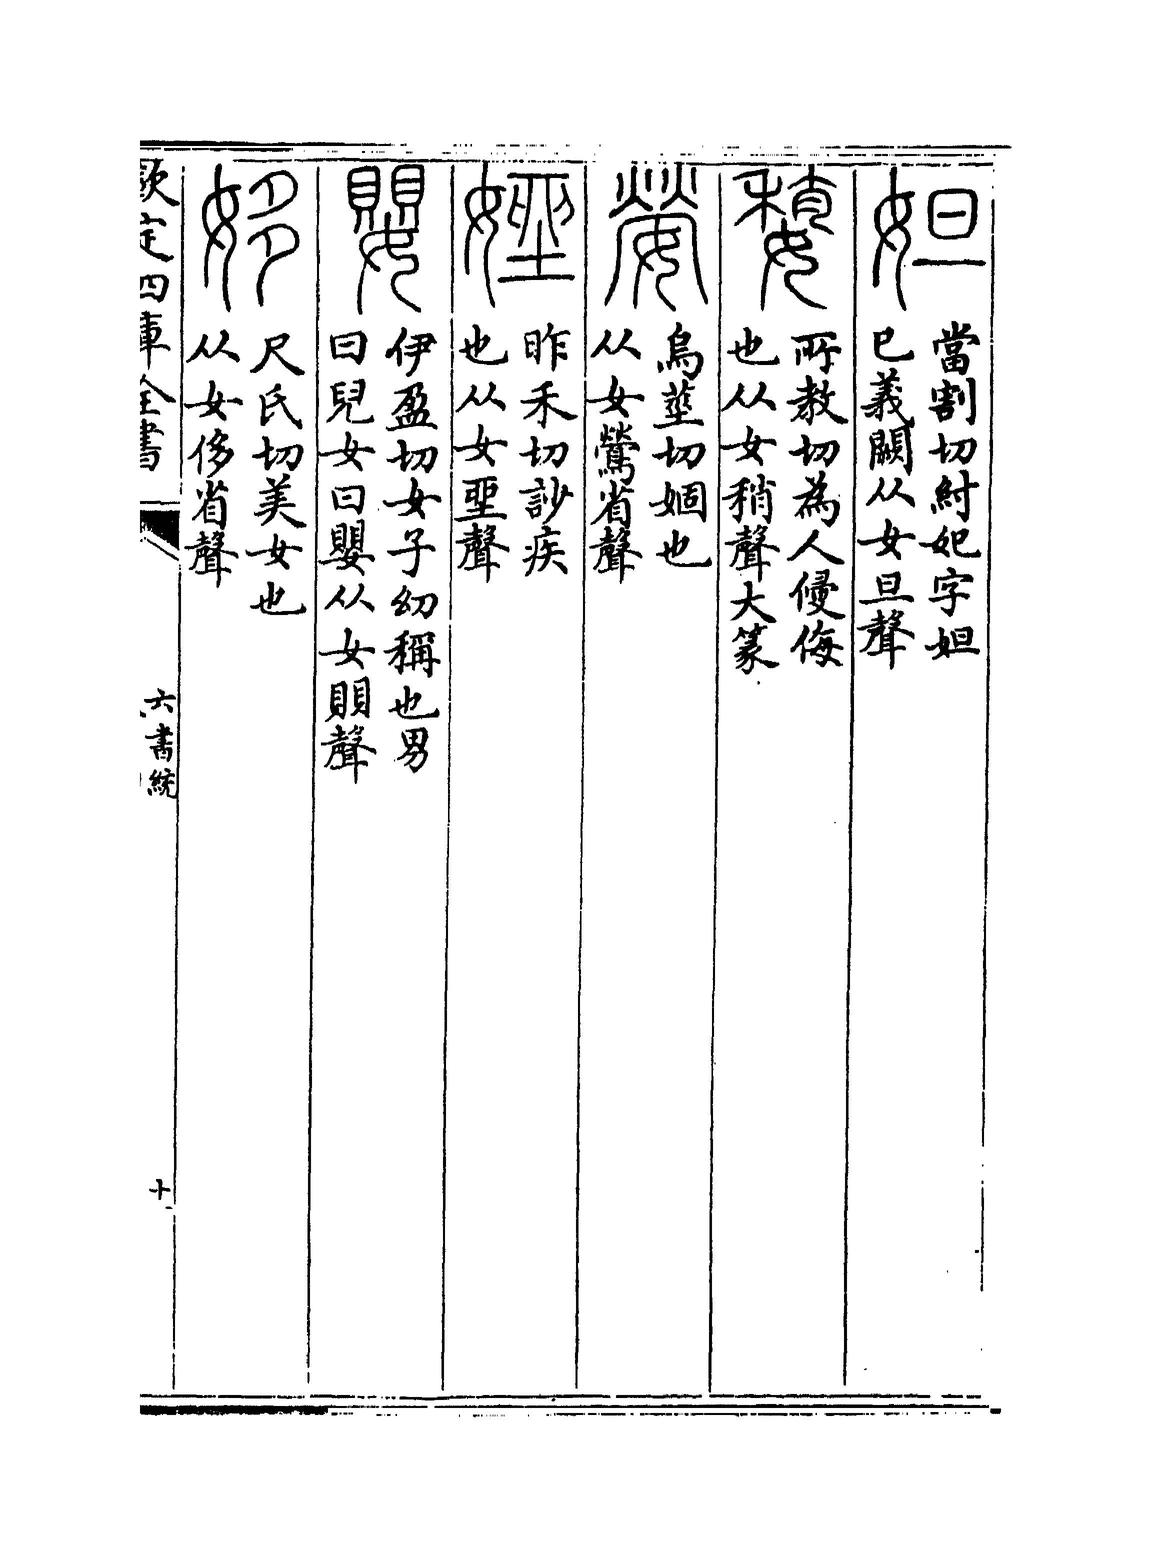 妲
當割切紂妃字妲
已義闕从女旦聲
所教切為人侵侮
也从女稍聲大篆
嫈
烏莖切婟也
从女鶯省聲
㛗
昨禾切訬疾
也从女聖聲
嬰
伊盈切女子幼稱也男
曰兒女曰嬰从女賏聲
姼
尺氏切美女也
从女侈省聲
欽定四庫全書
六書統
十